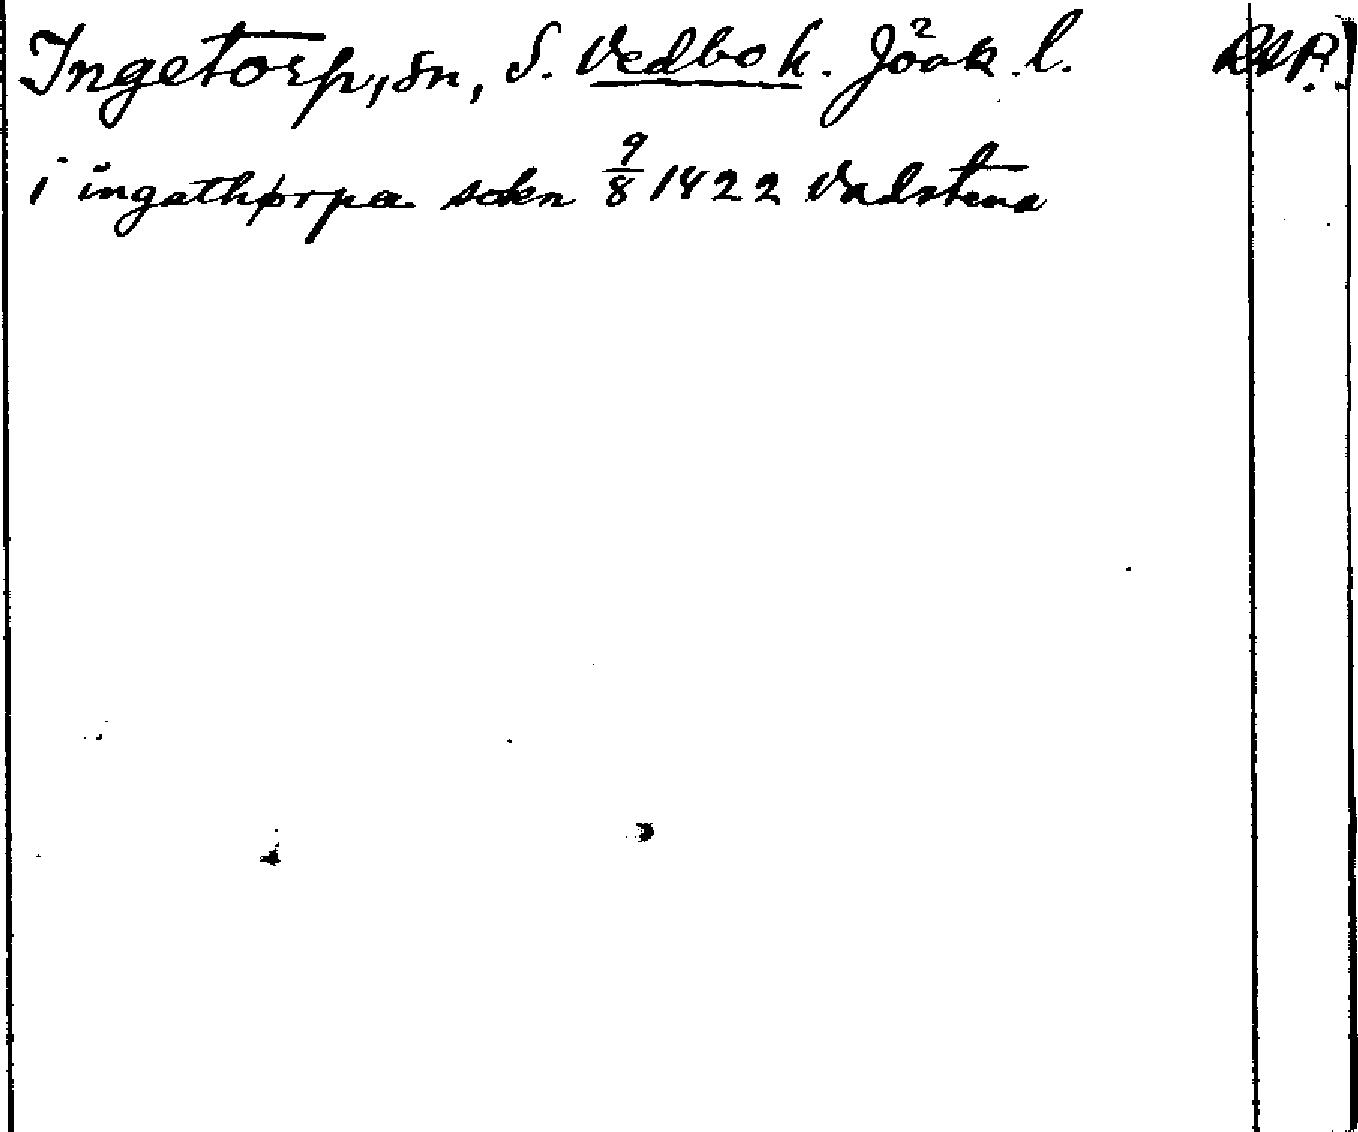 Ingetorp, sn, S. Vedbo h. Jönk. l. RAP.
i ingathørpa sokn 9/8 1422 Vadstena